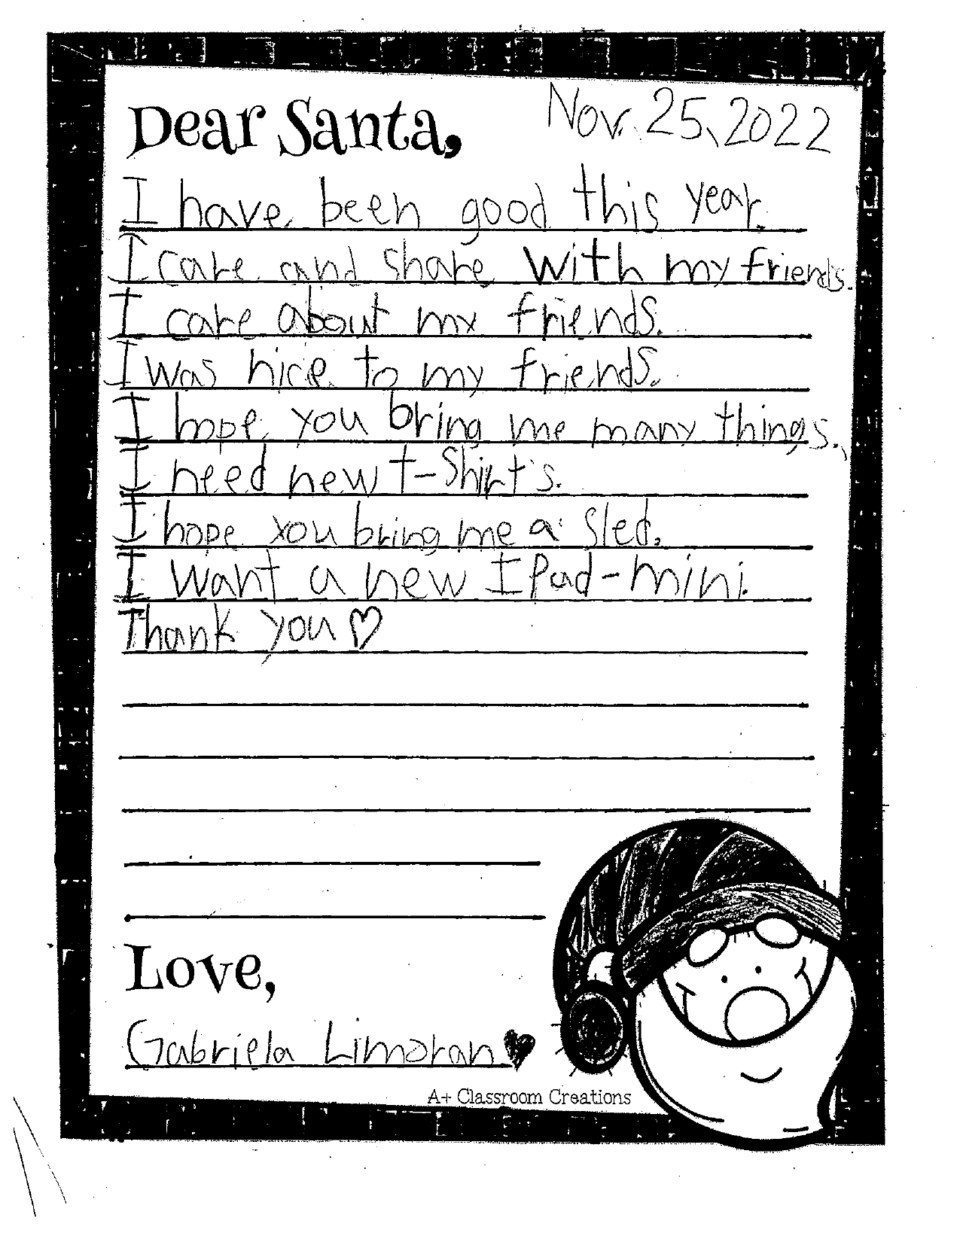 Dear Santa, Nov. 25, 2022
I have been good this year.
I care and share with my friends.
I care about my friends.
I was nice to my friends.
I hope you bring me many things.
I need new t-shirt's.
I hope you bring me a sled.
I want a new IPad-mini.
Thank you ♡
Love,
Gabriela Limoran ♥
A+ Classroom Creations